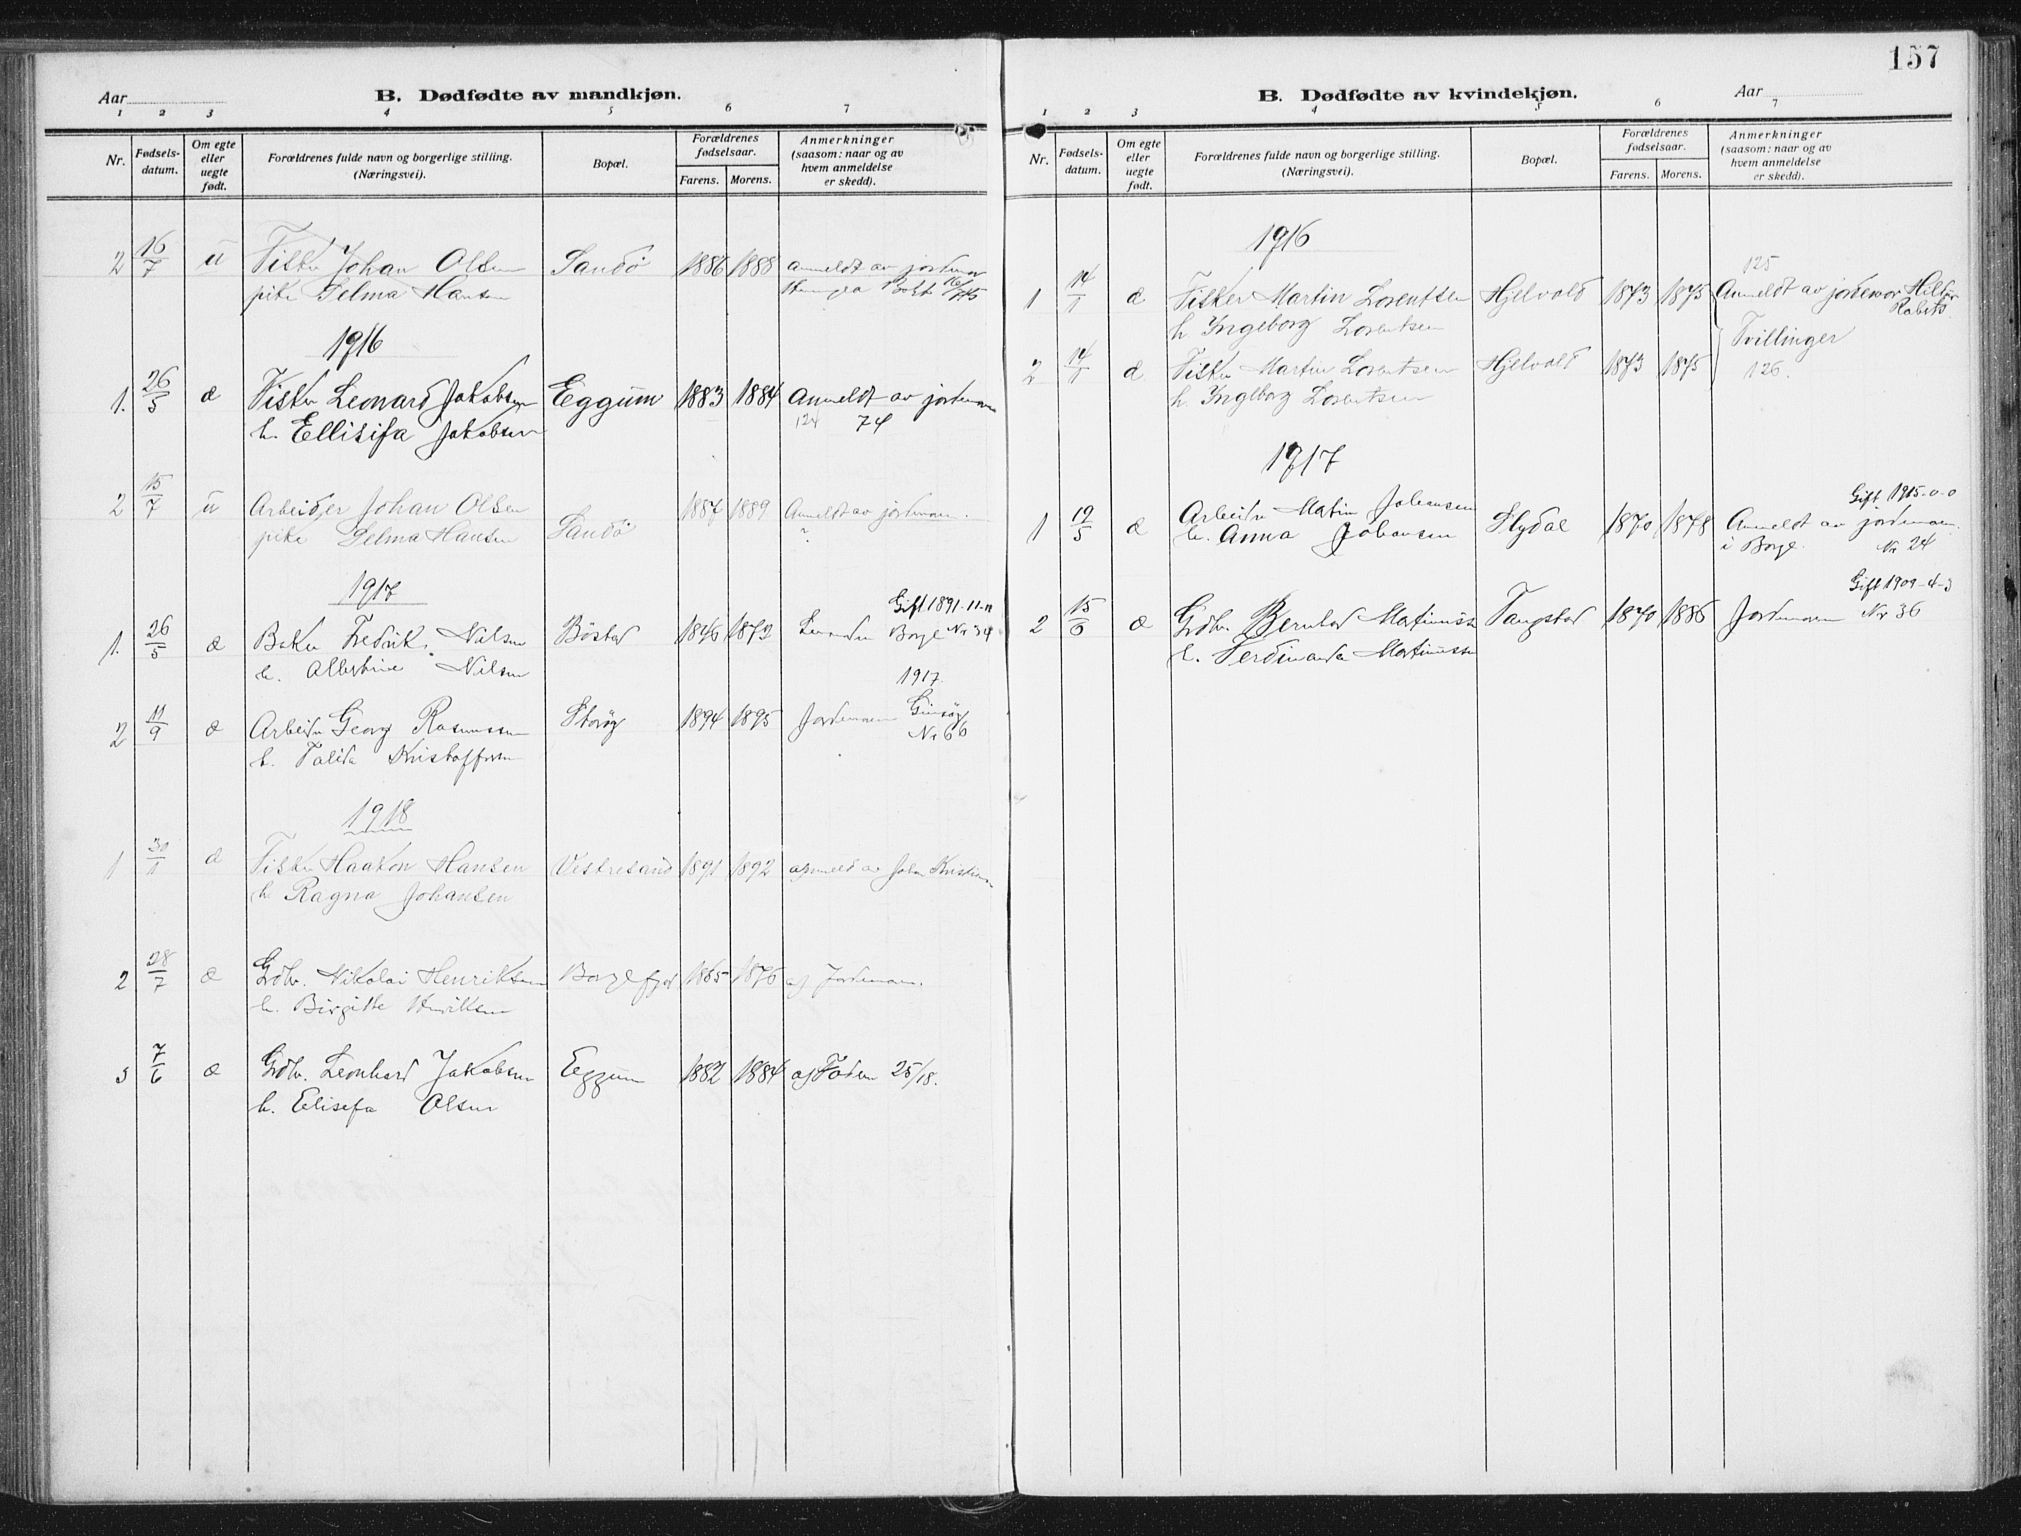 Aar
B. Dødfødte av mandkjøn.
1 2 3 4 5 6 7
Nr.
Fødsels-
datum.
Om egte
eller
uegte
født.
Forældrenes fulde navn og borgerlige stilling.
(Næringsvei).
Bopæl.
Forældrenes
fødselsaar.
Farens. Morens.
Anmerkninger
(saasom: naar og av
hvem anmeldelse
er skedd).
2 16/7 u Fisker Johan Olsen Sandö 1886 1888 anmeldt av jordmor
pike Selma Hansen
1916
1. 26/3 æ Fisker Leonard Jakobsen Eggum 1883 1884 Anmeldt av jordmoren
h. Ellisifa Jakobsen 124 74
2 15/7 u Arbeider Johan Olsen 1887 1889 Anmeldt av jordmoren.
pike Selma Hansen Sandö
1917
Gift 1891-11-11
1. 26/5 æ Fredrik Nilsen Böstad 1872 Borge Nr 34
h. Albertine Nilsen
1917.
2 11/9 æ Arbeider Georg Rasmussen 1894 1895 Jordmoren Gimsøy
h. Kristoffersen Nr 66
1918
1 30/1 æ Fisker Haakon Hansen Vestresand 1891 1892 anmeldt av Johan
h. Ragna Johansen
2 28/7 æ Gdbr. Nikolai Henriksen Borgefjord 1865 1876 af Jordmoren.
h. Birgitte Henriksen
3 7/6 æ Gdbr. Leonhard Jakobsen Eggum 1882 1884 af Faderen 25/18.
h. Elisefa Olsen
157
B. Dødfødte av kvindekjøn.
Aar
1 2 3 4 5 6 7
Nr.
Fødsels-
datum.
Om egte
eller
uegte
født.
Forældrenes fulde navn og borgerlige stilling.
(Næringsvei).
Bopæl.
Forældrenes
fødselsaar.
Farens. Morens.
Anmerkninger
(saasom: naar og av
hvem anmeldelse
er skedd).
1916
125
1 14/1 æ Fisker Martin Lorentsen Hjelvold 1873 1875 Anmeldt av jordemor
h Ingeborg Lorentsen
Tvillinger
2 14/1 æ Fisker Martin Lorentsen Hjelvold 1873 1875 126.
h. Ingeborg Lorentsen
1917
Gift 1915-0-0
1 æ Arbeider Martin Johansen 1870 1878 Anmeldt av jordmoren
h. Anna Johansen i Borge. Nr 24
Gift 1909-4-3
2 æ Gdbr. Bernhard Martinussen Tangstad 1870 1886 Jordmoren Nr 36
h. Ferdinanda Martinussen